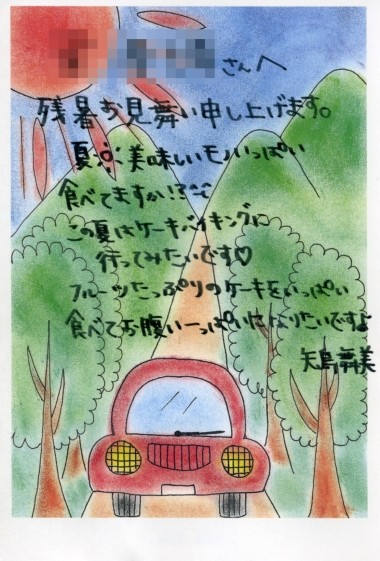 さんへ
残暑お見舞い申し上げます。
夏は美味しいモノいっぱい
食べてますか!?
この夏はケーキバイキングに
行ってみたいです♡
フルーツたっぷりのケーキをいっぱい
食べてお腹いーっぱいになりたいですよ
矢島舞美